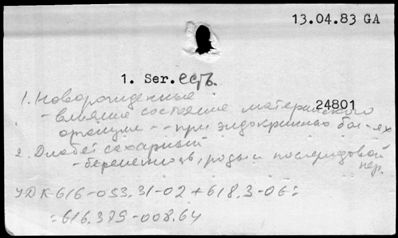 13.04.83 GA
1. Ser. есть
1. Новорожденные
- влияние состояния материнского 24801
организма -- при эндокринных бол-ях
2. Диабет сахарный
- беременность, роды и послеродовой
пер.
УДК-616-053.31-02+618.3-06:
:616.379-008.64